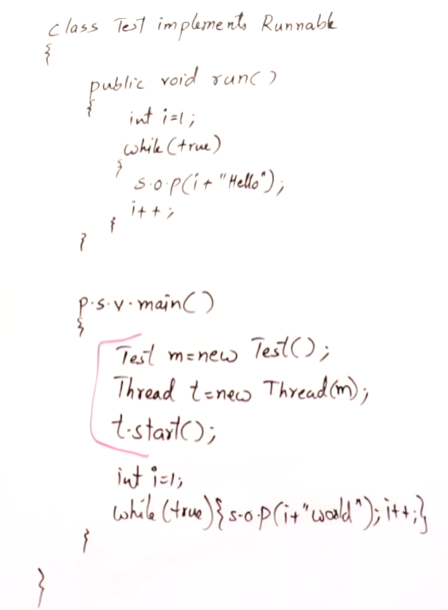 class Test implements Runnable
{
public void run()
{
int i=1;
while(true)
{
s.o.p(i+"Hello");
i++;
}
}
p.s.v.main()
{
Test m=new Test();
Thread t=new Thread(m);
t.start();
int i=1;
while(true){s.o.p(i+"world");i++;}
}
}